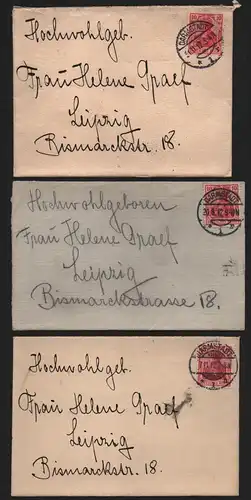 Hochwohlgeb.
Frau Helene Graef
Leipzig
Bismarckstr. 18.
Hochwohlgeboren
Frau Helene Graef
Leipzig
Bismarckstrasse 18.
Hochwohlgeb.
Frau Helene Graef
Leipzig
Bismarckstr. 18.